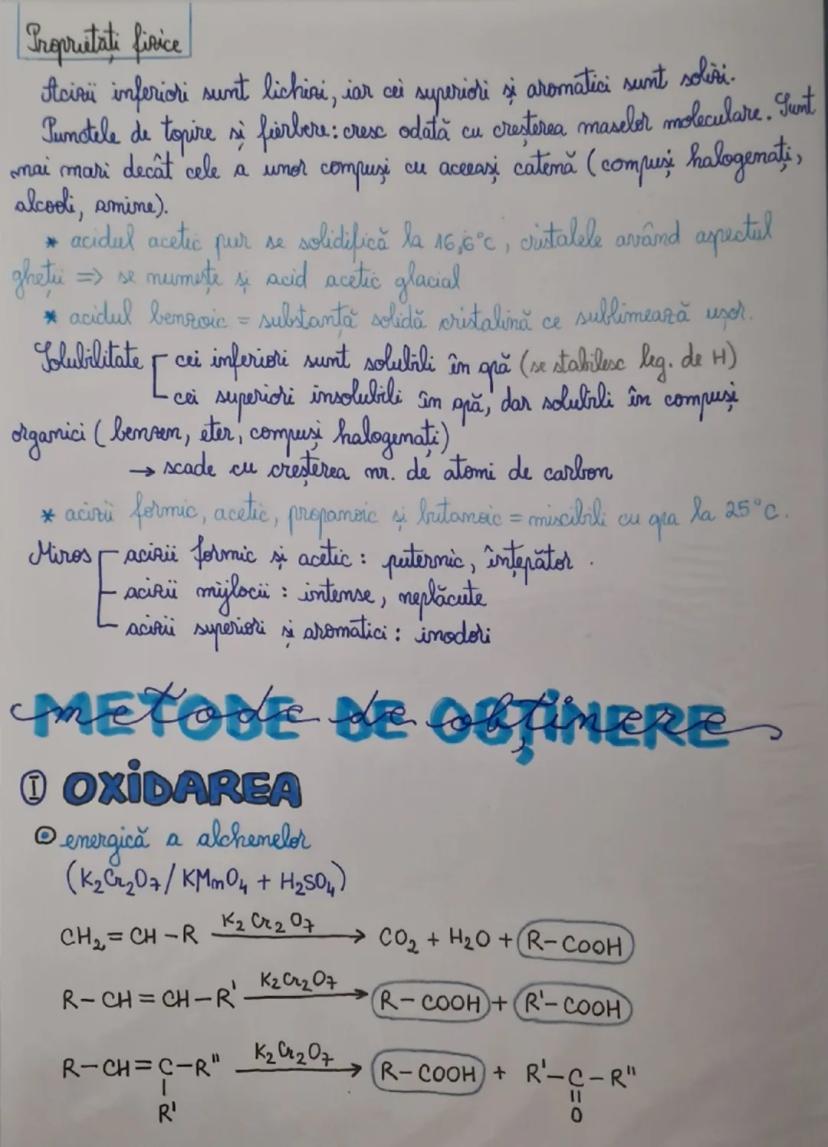 Proprietăți fizice
Acizii inferiori sunt lichizi, iar cei superiori și aromatici sunt solizi.
Punctele de topire și fierbere: cresc odată cu creșterea maselor moleculare. Sunt
mai mari decât cele a unor compuși cu aceeași catenă (compuși halogenați,
alcooli, amine).
* acidul acetic pur se solidifică la 16,6°C, cristalele având aspectul
gheții => se numește și acid acetic glacial
* acidul benzoic = substanță solidă cristalină ce sublimează ușor.
Solubilitate cei inferiori sunt solubili în apă (se stabilesc leg. de H)
cei superiori insolubili în apă, dar solubili în compuși
organici (benzen, eter, compuși halogenați)
→ scade cu creșterea nr. de atomi de carbon
* acizii formic, acetic, propanoic și butanoic = miscibili cu apa la 25°C.
Miros acizii formic și acetic: puternic, înțepător.
acizii mijlocii: intense, neplăcute
acizii superiori și aromatici: inodori
METODE DE OBȚINERE
I OXIDAREA
energică a alchenelor
(K₂Cr₂O₇/KMnO₄ + H₂SO₄)
CH₂=CH-R K₂Cr₂O₇ → CO₂ + H₂O + R-COOH
R-CH=CH-R' K₂Cr₂O₇ → R-COOH + R'-COOH
R-CH=C-R" K₂Cr₂O₇ → R-COOH + R'-C-R"
R' O